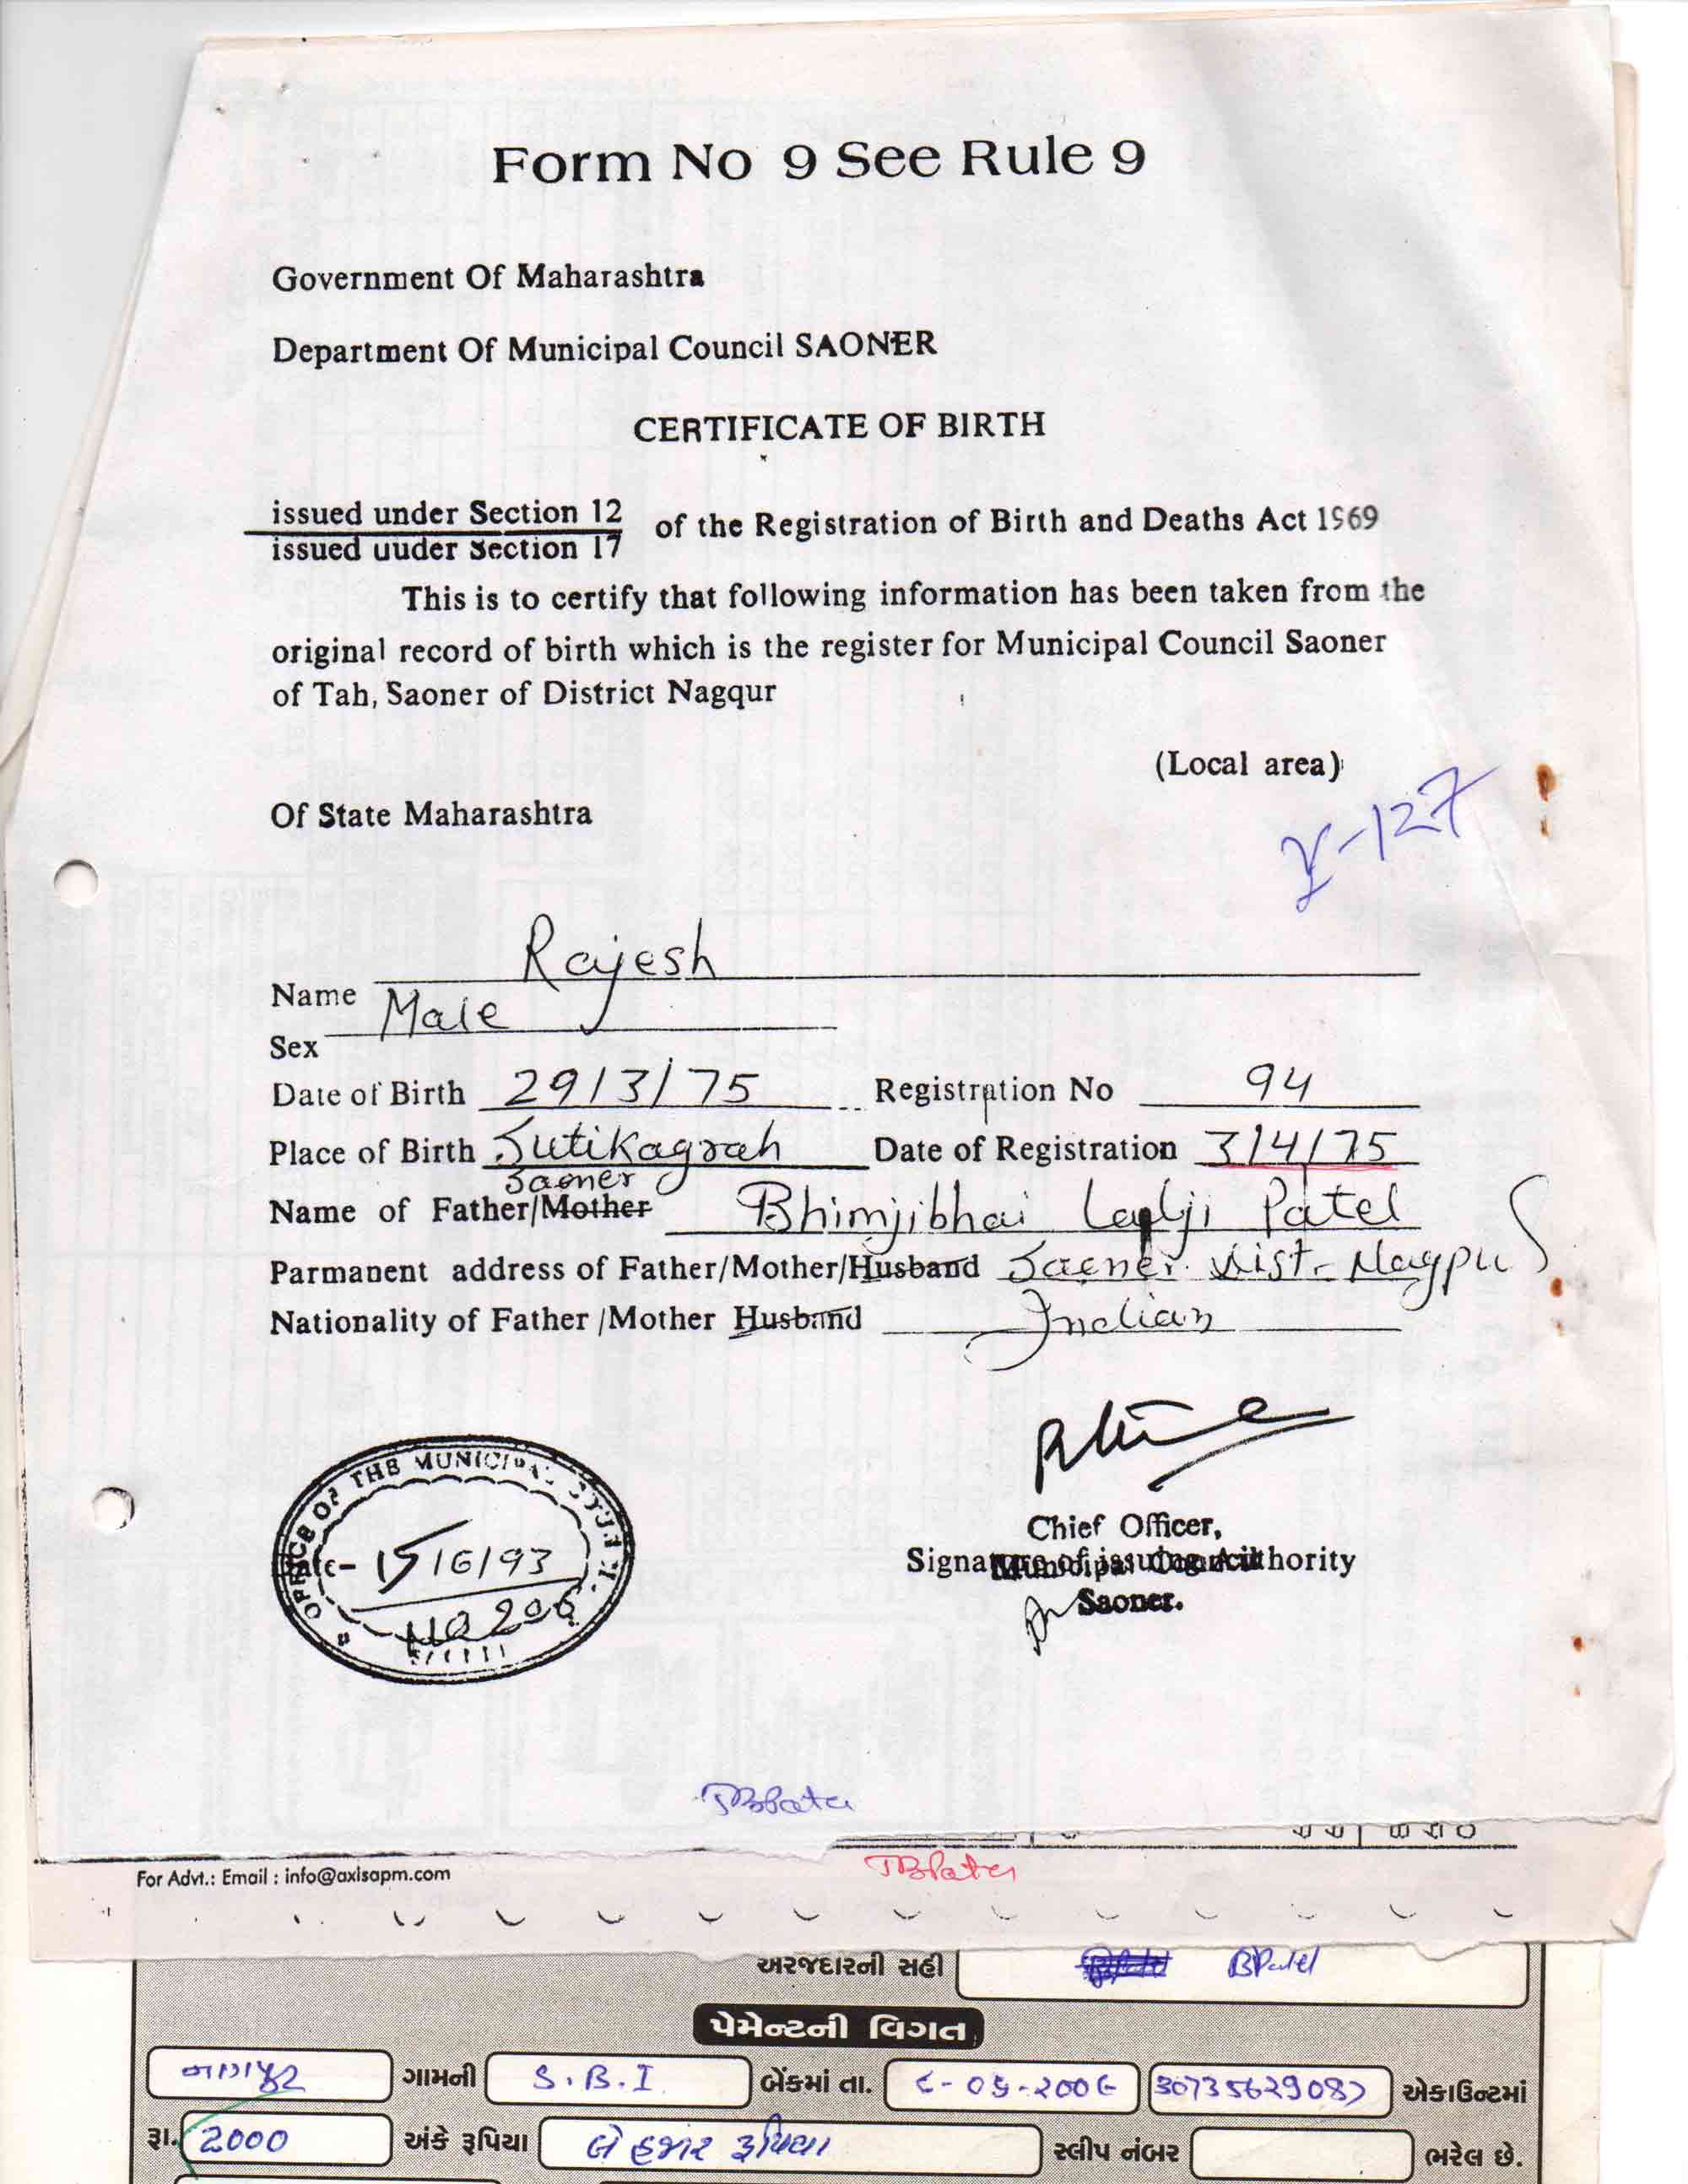 Form No 9 See Rule 9
Government Of Maharashtra
Department Of Municipal Council SAONER
CERTIFICATE OF BIRTH
issued under Section 12
issued uuder Section 17
of the Registration of Birth and Deaths Act 1969
This is to certify that following information has been taken from the
original record of birth which is the register for Municipal Council Saoner
of Tah, Saoner of District Nagqur
(Local area)
Of State Maharashtra
y-127
Name Rajesh
Sex Male
Date of Birth 29/3/75 Registration No 94
Place of Birth Sutikagrah Date of Registration 3/4/75
Saoner
Name of Father/Mother Bhimjibhai Lalji Patel
Parmanent address of Father/Mother/Husband Saoner Dist- Nagpur
Nationality of Father /Mother Husband Indian
OFFICE OF THE MUNICIPAL
Date- 15/6/93
NO 206
Chief Officer,
Signature of issuing Authority
Municipal Council
Saoner.
For Advt.: Email : info@axisapm.com
અરજદારની સહી BPatel
પેમેન્ટની વિગત
નાગપુર ગામની S.B.I બેંકમાં તા. 30735629087 એકાઉન્ટમાં
રૂા. 2000 અંકે રૂપિયા બે હજાર રૂપિયા સ્લીપ નંબર ભરેલ છે.